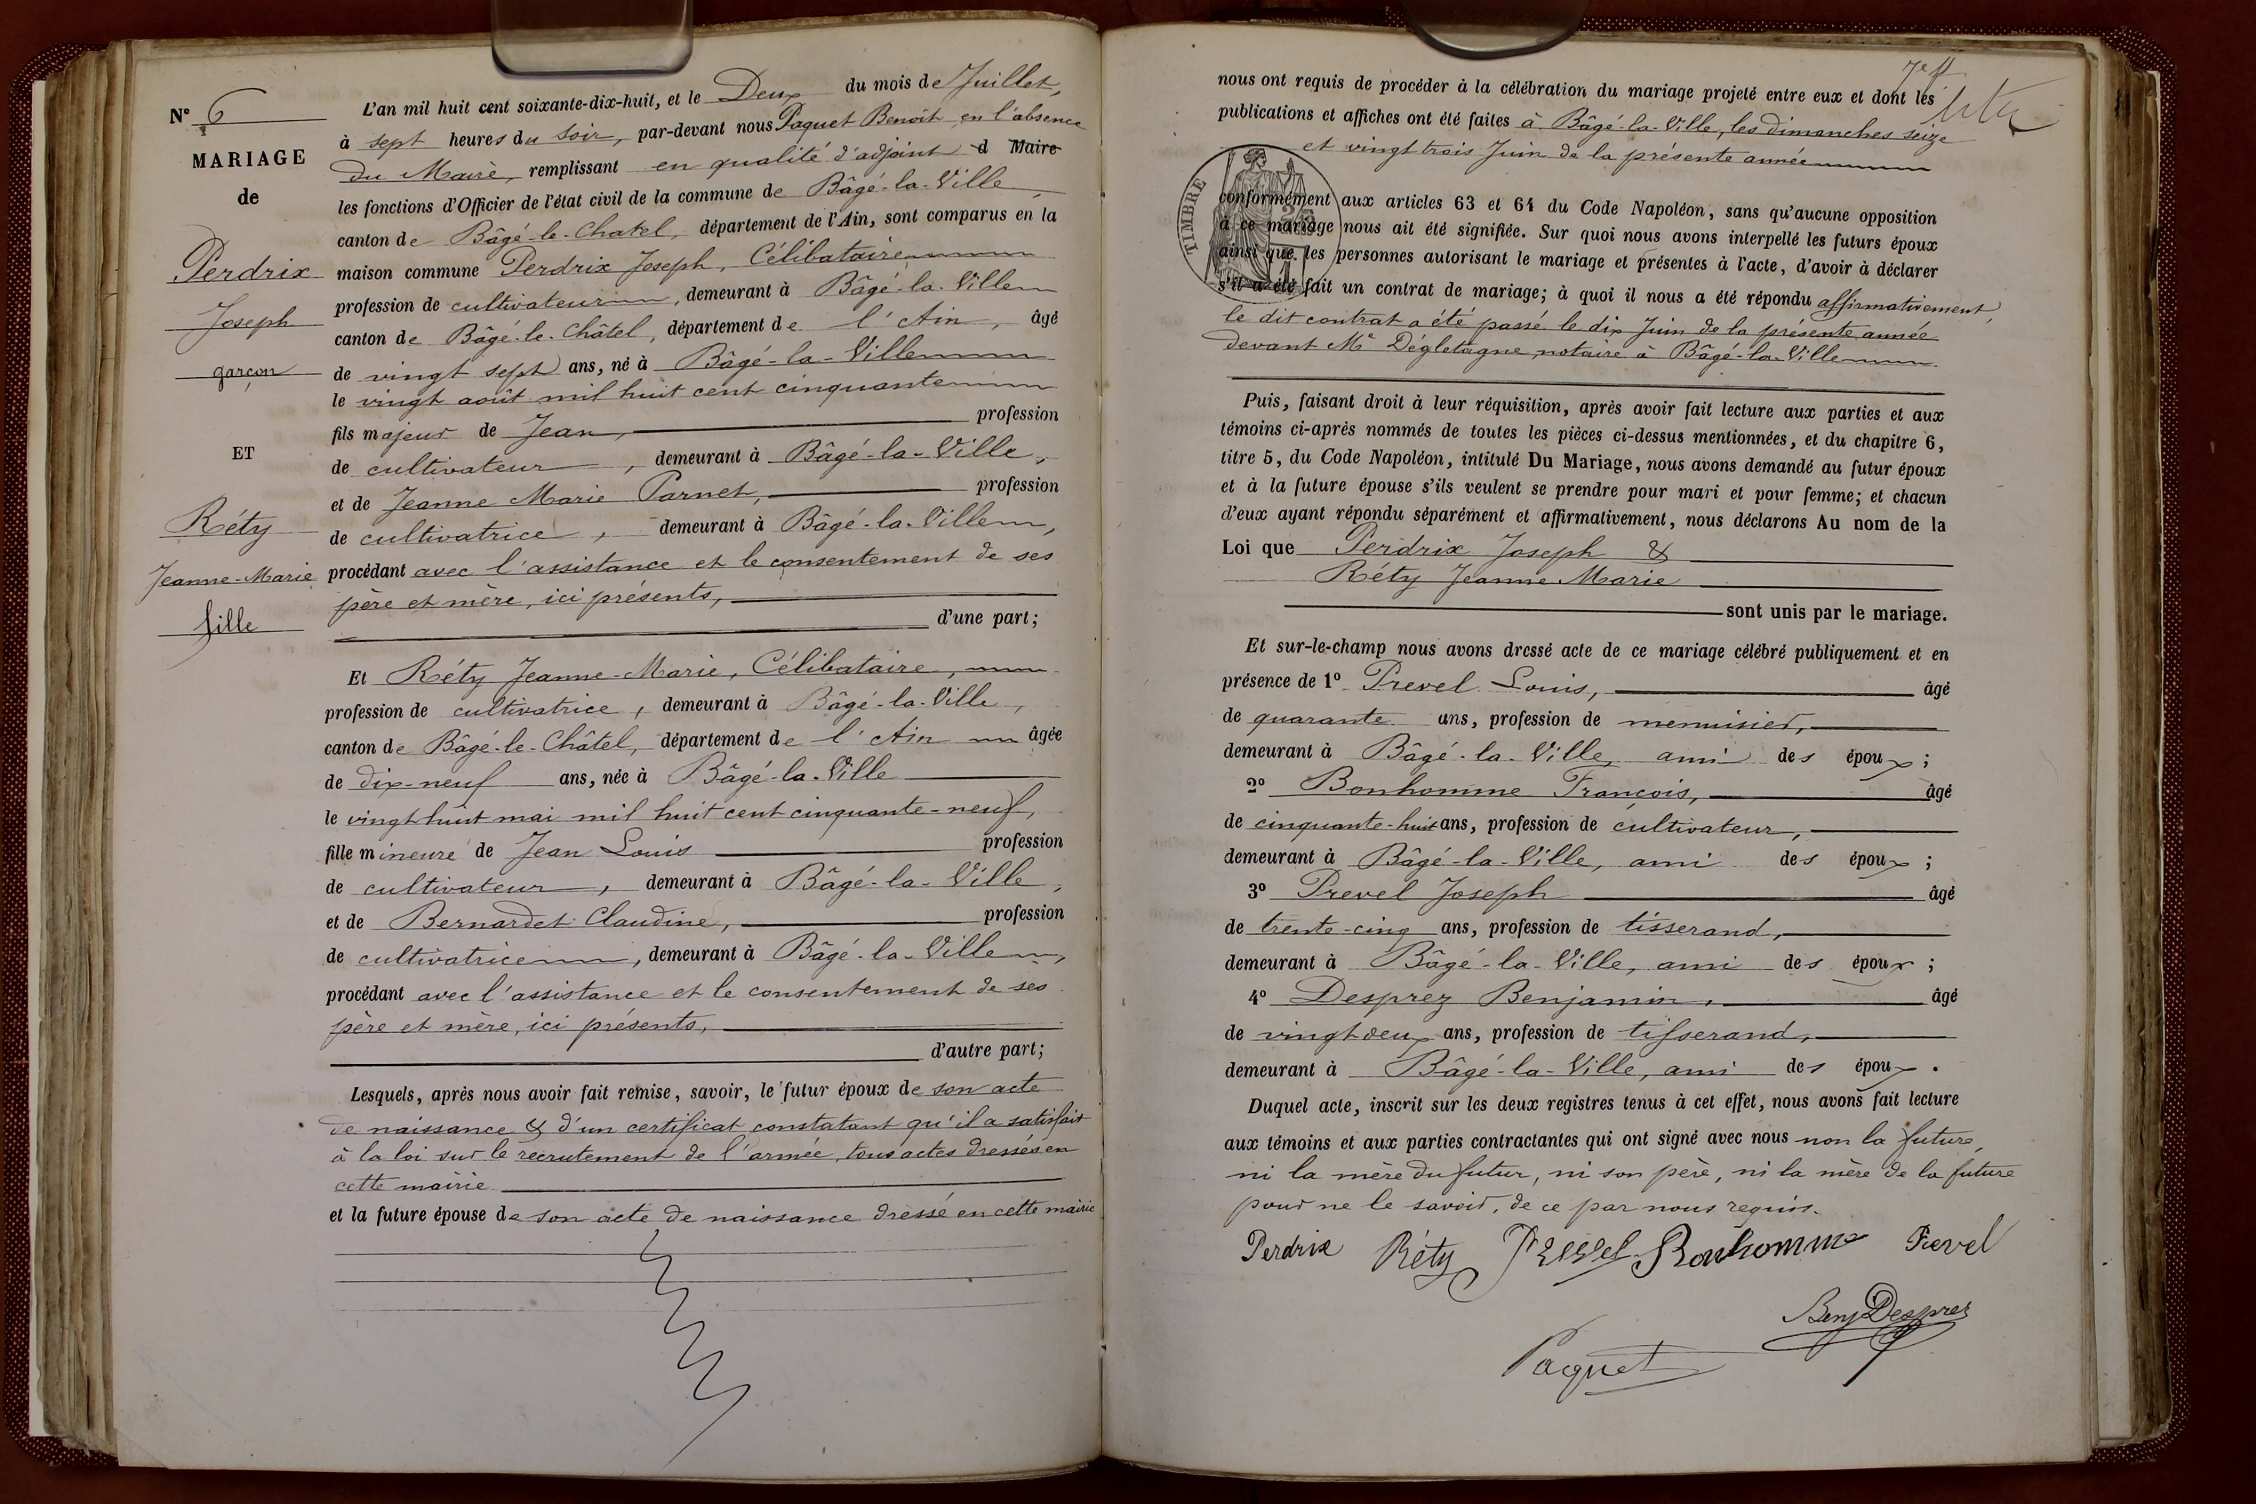 N° 6
MARIAGE
de
Perdrix
Joseph
garçon
ET
Réty
Jeanne-Marie
fille
L'an mil huit cent soixante-dix-huit, et le Deux du mois de Juillet,
à sept heures du soir, par-devant nous Paquet Benoît en l'absence
du Maire, remplissant en qualité d'adjoint d Maire
les fonctions d'Officier de l'état civil de la commune de Bâgé-la-Ville,
canton de Bâgé-le-Chatel, département de l'Ain, sont comparus en la
maison commune Perdrix Joseph, Célibataire
profession de cultivateur, demeurant à Bâgé-la-Ville
canton de Bâgé-le-Châtel, département de l'Ain, âgé
de vingt sept ans, né à Bâgé-la-Ville
le vingt août mil huit cent cinquante
fils majeur de Jean, profession
de cultivateur, demeurant à Bâgé-la-Ville,
et de Jeanne Marie Parnet, profession
de cultivatrice, demeurant à Bâgé-la-Ville,
procédant avec l'assistance et le consentement de ses
père et mère, ici présents,
d'une part;
Et Réty Jeanne-Marie, Célibataire,
profession de cultivatrice, demeurant à Bâgé-la-Ville,
canton de Bâgé-le-Châtel, département de l'Ain âgée
de dix-neuf ans, née à Bâgé-la-Ville
le vingt huit mai mil huit cent cinquante-neuf,
fille mineure de Jean Louis profession
de cultivateur, demeurant à Bâgé-la-Ville,
et de Bernardet Claudine, profession
de cultivatrice, demeurant à Bâgé-la-Ville,
procédant avec l'assistance et le consentement de ses
père et mère, ici présents,
d'autre part;
Lesquels, après nous avoir fait remise, savoir, le futur époux de son acte
de naissance & d'un certificat constatant qu'il a satisfait
à la loi sur le recrutement de l'armée, tous actes dressés en
cette mairie
et la future épouse de son acte de naissance dressé en cette mairie
nous ont requis de procéder à la célébration du mariage projeté entre eux et dont les
publications et affiches ont été faites à Bâgé-la-Ville, les dimanches seize
et vingt trois Juin de la présente année
TIMBRE
conformément aux articles 63 et 64 du Code Napoléon, sans qu'aucune opposition
à ce mariage nous ait été signifiée. Sur quoi nous avons interpellé les futurs époux
ainsi que les personnes autorisant le mariage et présentes à l'acte, d'avoir à déclarer
s'il a été fait un contrat de mariage; à quoi il nous a été répondu affirmativement,
le dit contrat a été passé le dix Juin de la présente année
devant Me Dégletagne notaire à Bâgé-la-Ville
Puis, faisant droit à leur réquisition, après avoir fait lecture aux parties et aux
témoins ci-après nommés de toutes les pièces ci-dessus mentionnées, et du chapitre 6,
titre 5, du Code Napoléon, intitulé Du Mariage, nous avons demandé au futur époux
et à la future épouse s'ils veulent se prendre pour mari et pour femme; et chacun
d'eux ayant répondu séparément et affirmativement, nous déclarons Au nom de la
Loi que Perdrix Joseph &
Réty Jeanne Marie
sont unis par le mariage.
Et sur-le-champ nous avons dressé acte de ce mariage célébré publiquement et en
présence de 1° Prevel Louis, âgé
de quarante ans, profession de menuisier,
demeurant à Bâgé-la-Ville, ami des époux;
2° Bonhomme François, âgé
de cinquante-huit ans, profession de cultivateur,
demeurant à Bâgé-la-Ville, ami des époux;
3° Prevel Joseph âgé
de trente-cinq ans, profession de tisserand,
demeurant à Bâgé-la-Ville, ami des époux;
4° Desprez Benjamin, âgé
de vingt deux ans, profession de tisserand,
demeurant à Bâgé-la-Ville, ami des époux.
Duquel acte, inscrit sur les deux registres tenus à cet effet, nous avons fait lecture
aux témoins et aux parties contractantes qui ont signé avec nous non la future,
ni la mère du futur, ni son père, ni la mère de la future
pour ne le savoir, de ce par nous requis.
Perdrix Réty Prevel Bonhomme Prevel
Benj Desprez
Paquet